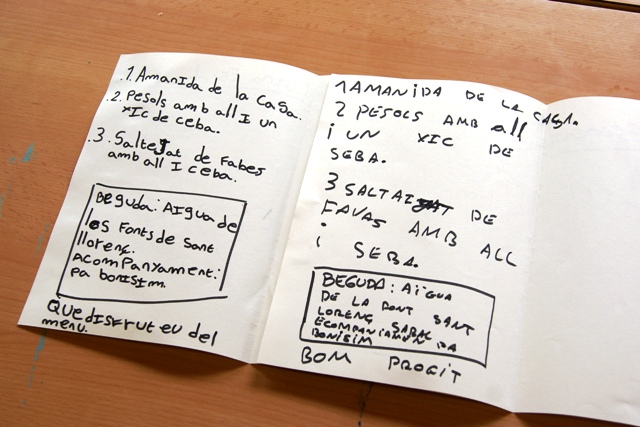 .1. Amanida de la casa.
.2. Pesols amb all I un
xic de ceba.
3. Saltejat de Fabes
amb all I ceba.
Beguda: Aigua de
les Fonts de Sant
llorenç.
Acompanyament:
pa bonisim.
Que disfruteu del
menu.
1 AMANiDA DE LA CASA.
2 PESOLS AMB all
i UN XIC DE
SEBA.
3 SALTAI DE
FAVAS AMB ALL
i SEBA.
BEGUDA: Aigua
DE LA FONT SANT
LORENÇ SABAL
ECOMPANIAMEN DA
BONISIM
BOM PROFIT